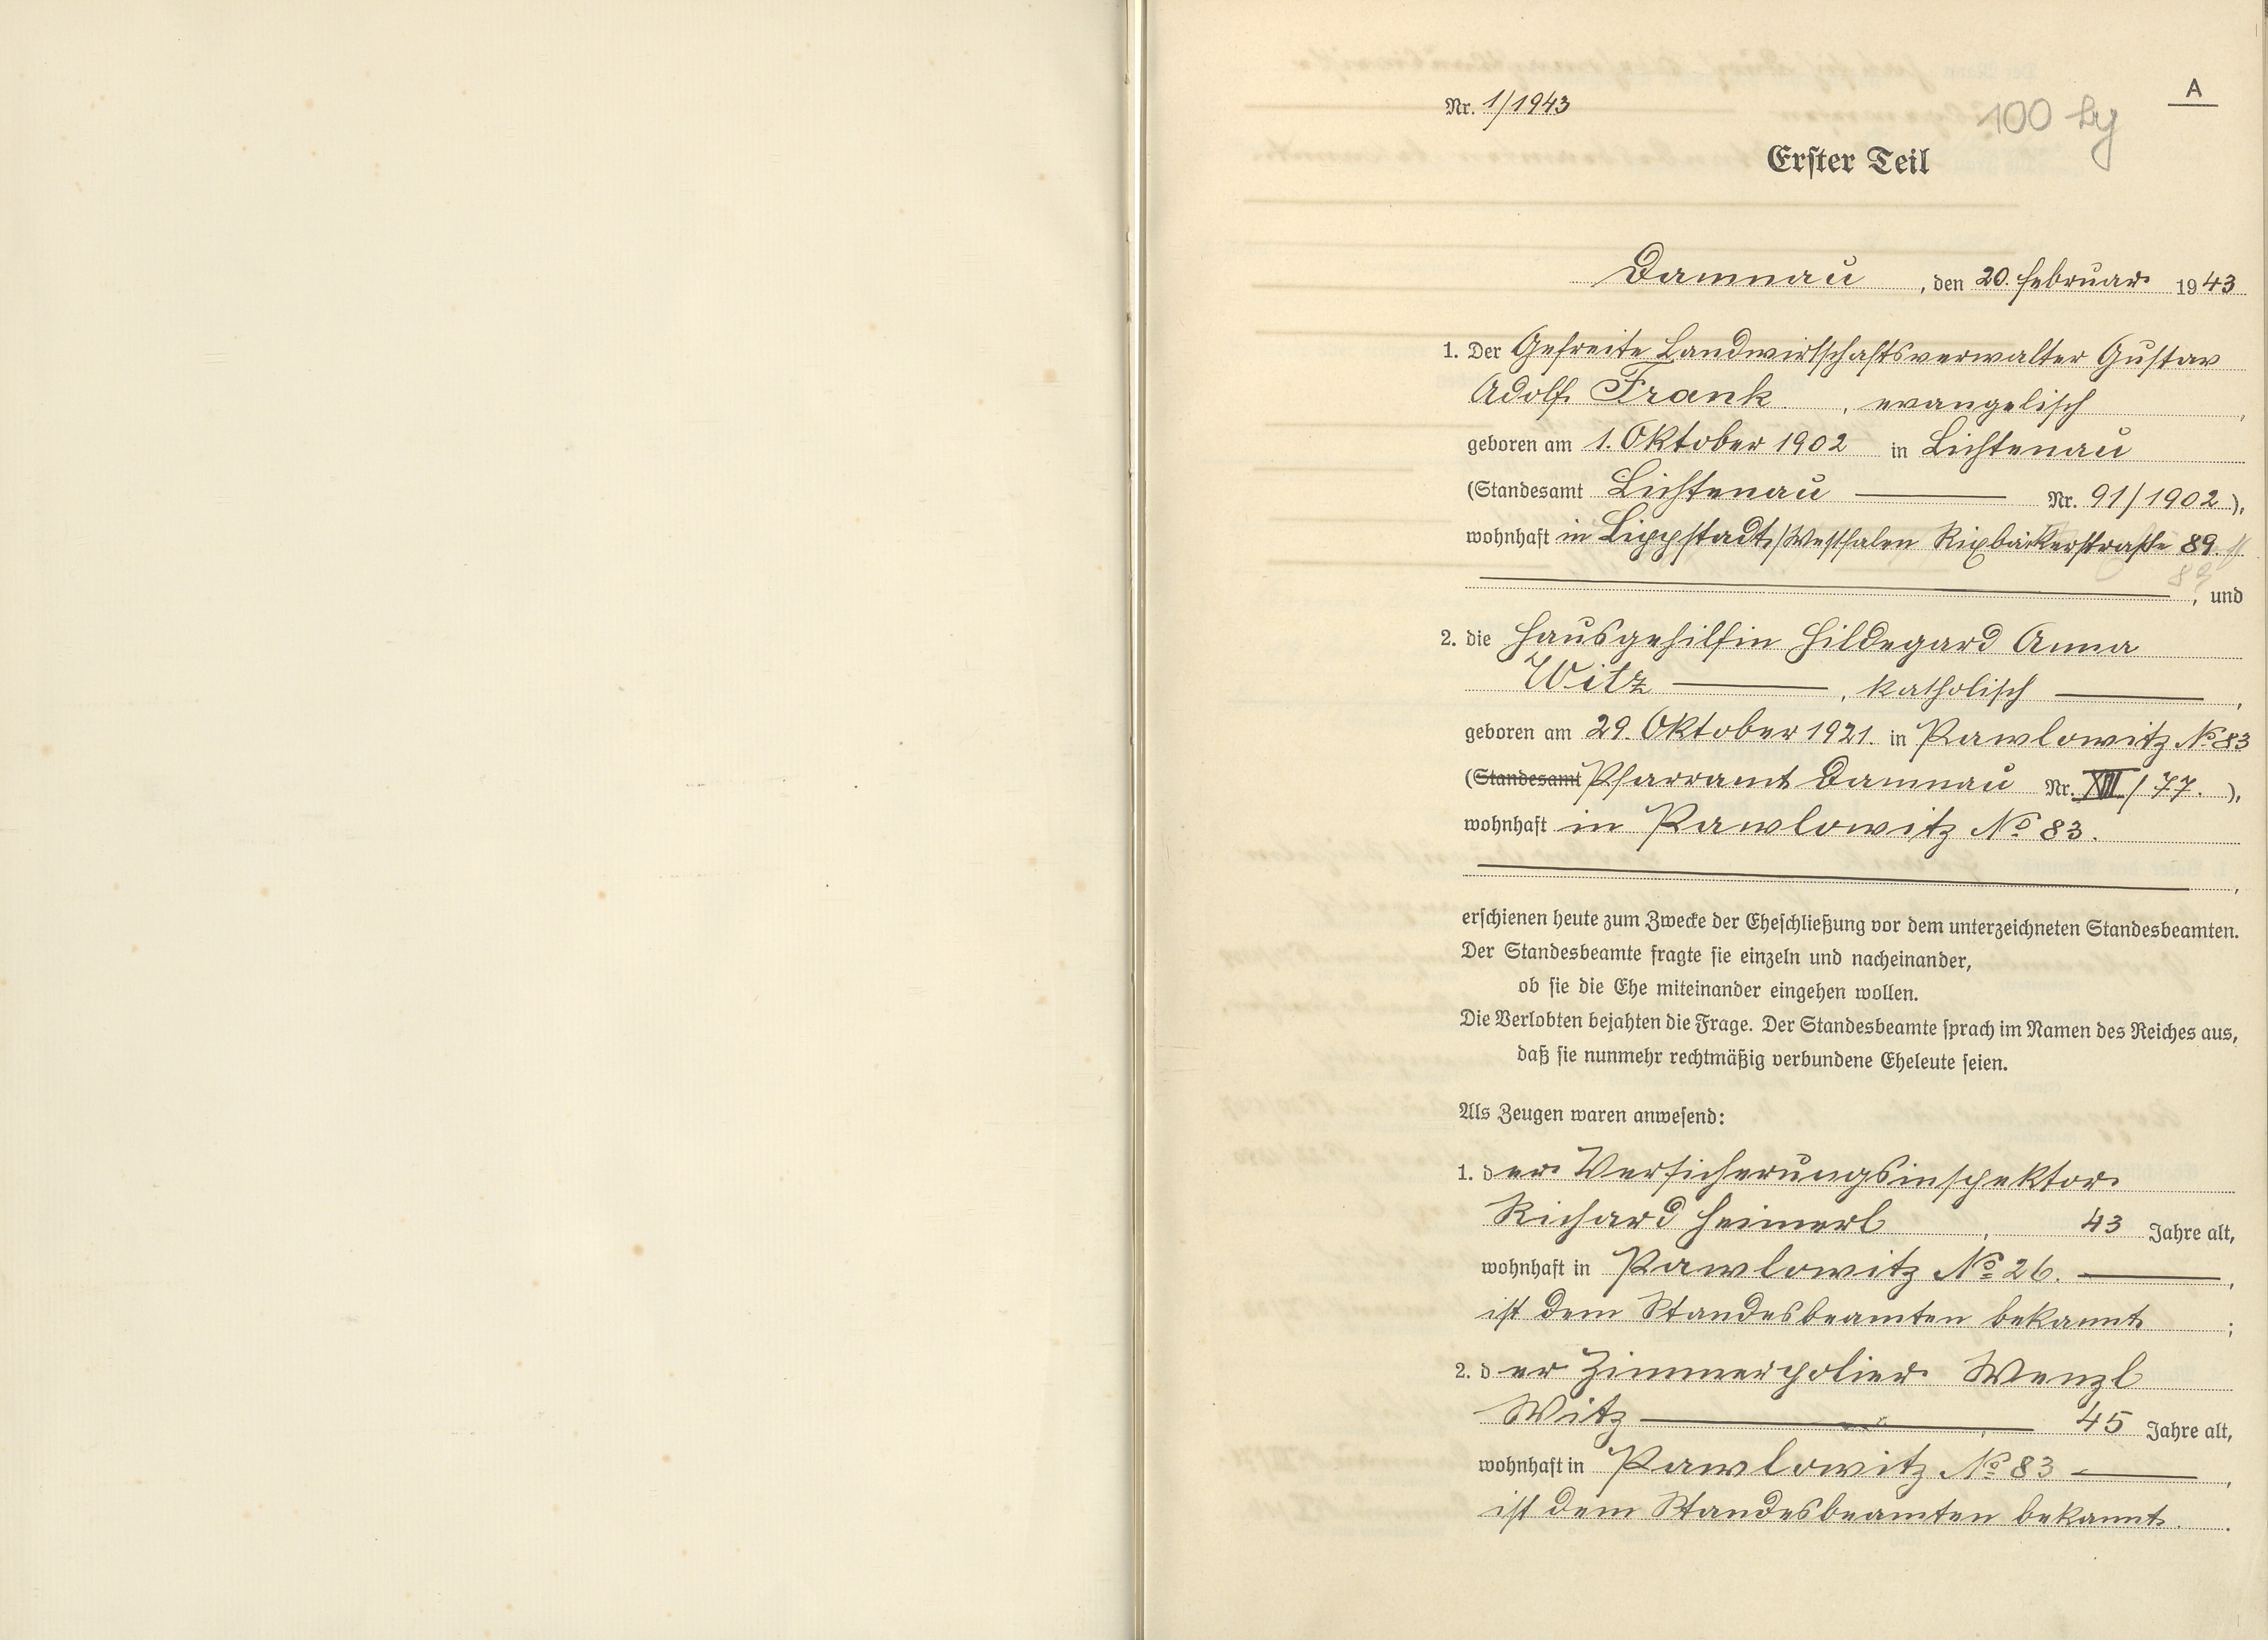 A
Nr. 1/1943
100
Erster Teil
Damnau, den 20. Februar 1943
1. Der Gefreite Landwirtschaftsverwalter Gustav
Adolf Frank, evangelisch,
geboren am 1. Oktober 1902 in Lichtenau
(Standesamt Lichtenau Nr. 91/1902),
wohnhaft in Lippstadt/Westfalen Rixbäckerstraße 89.
89
, und
2. die Hausgehilfin Hildegard Anna
Witz, katholisch,
geboren am 29. Oktober 1921. in Pawlowitz No 83
(Standesamt Pfarramt Damnau Nr. XIII/77.),
wohnhaft in Pawlowitz No 83.
,
erschienen heute zum Zwecke der Eheschließung vor dem unterzeichneten Standesbeamten.
Der Standesbeamte fragte sie einzeln und nacheinander,
ob sie die Ehe miteinander eingehen wollen.
Die Verlobten bejahten die Frage. Der Standesbeamte sprach im Namen des Reiches aus,
daß sie nunmehr rechtmäßig verbundene Eheleute seien.
Als Zeugen waren anwesend:
1. der Versicherungsinspektor
Richard Heimerl, 43 Jahre alt,
wohnhaft in Pawlowitz No 26.,
ist dem Standesbeamten bekannt;
2. der Zimmerpolier Wenzl
Witz, 45 Jahre alt,
wohnhaft in Pawlowitz No 83,
ist dem Standesbeamten bekannt.